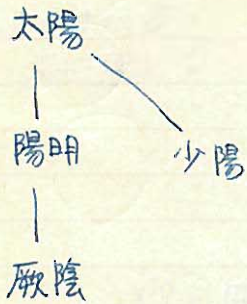 太陽
陽明
少陽
厥陰